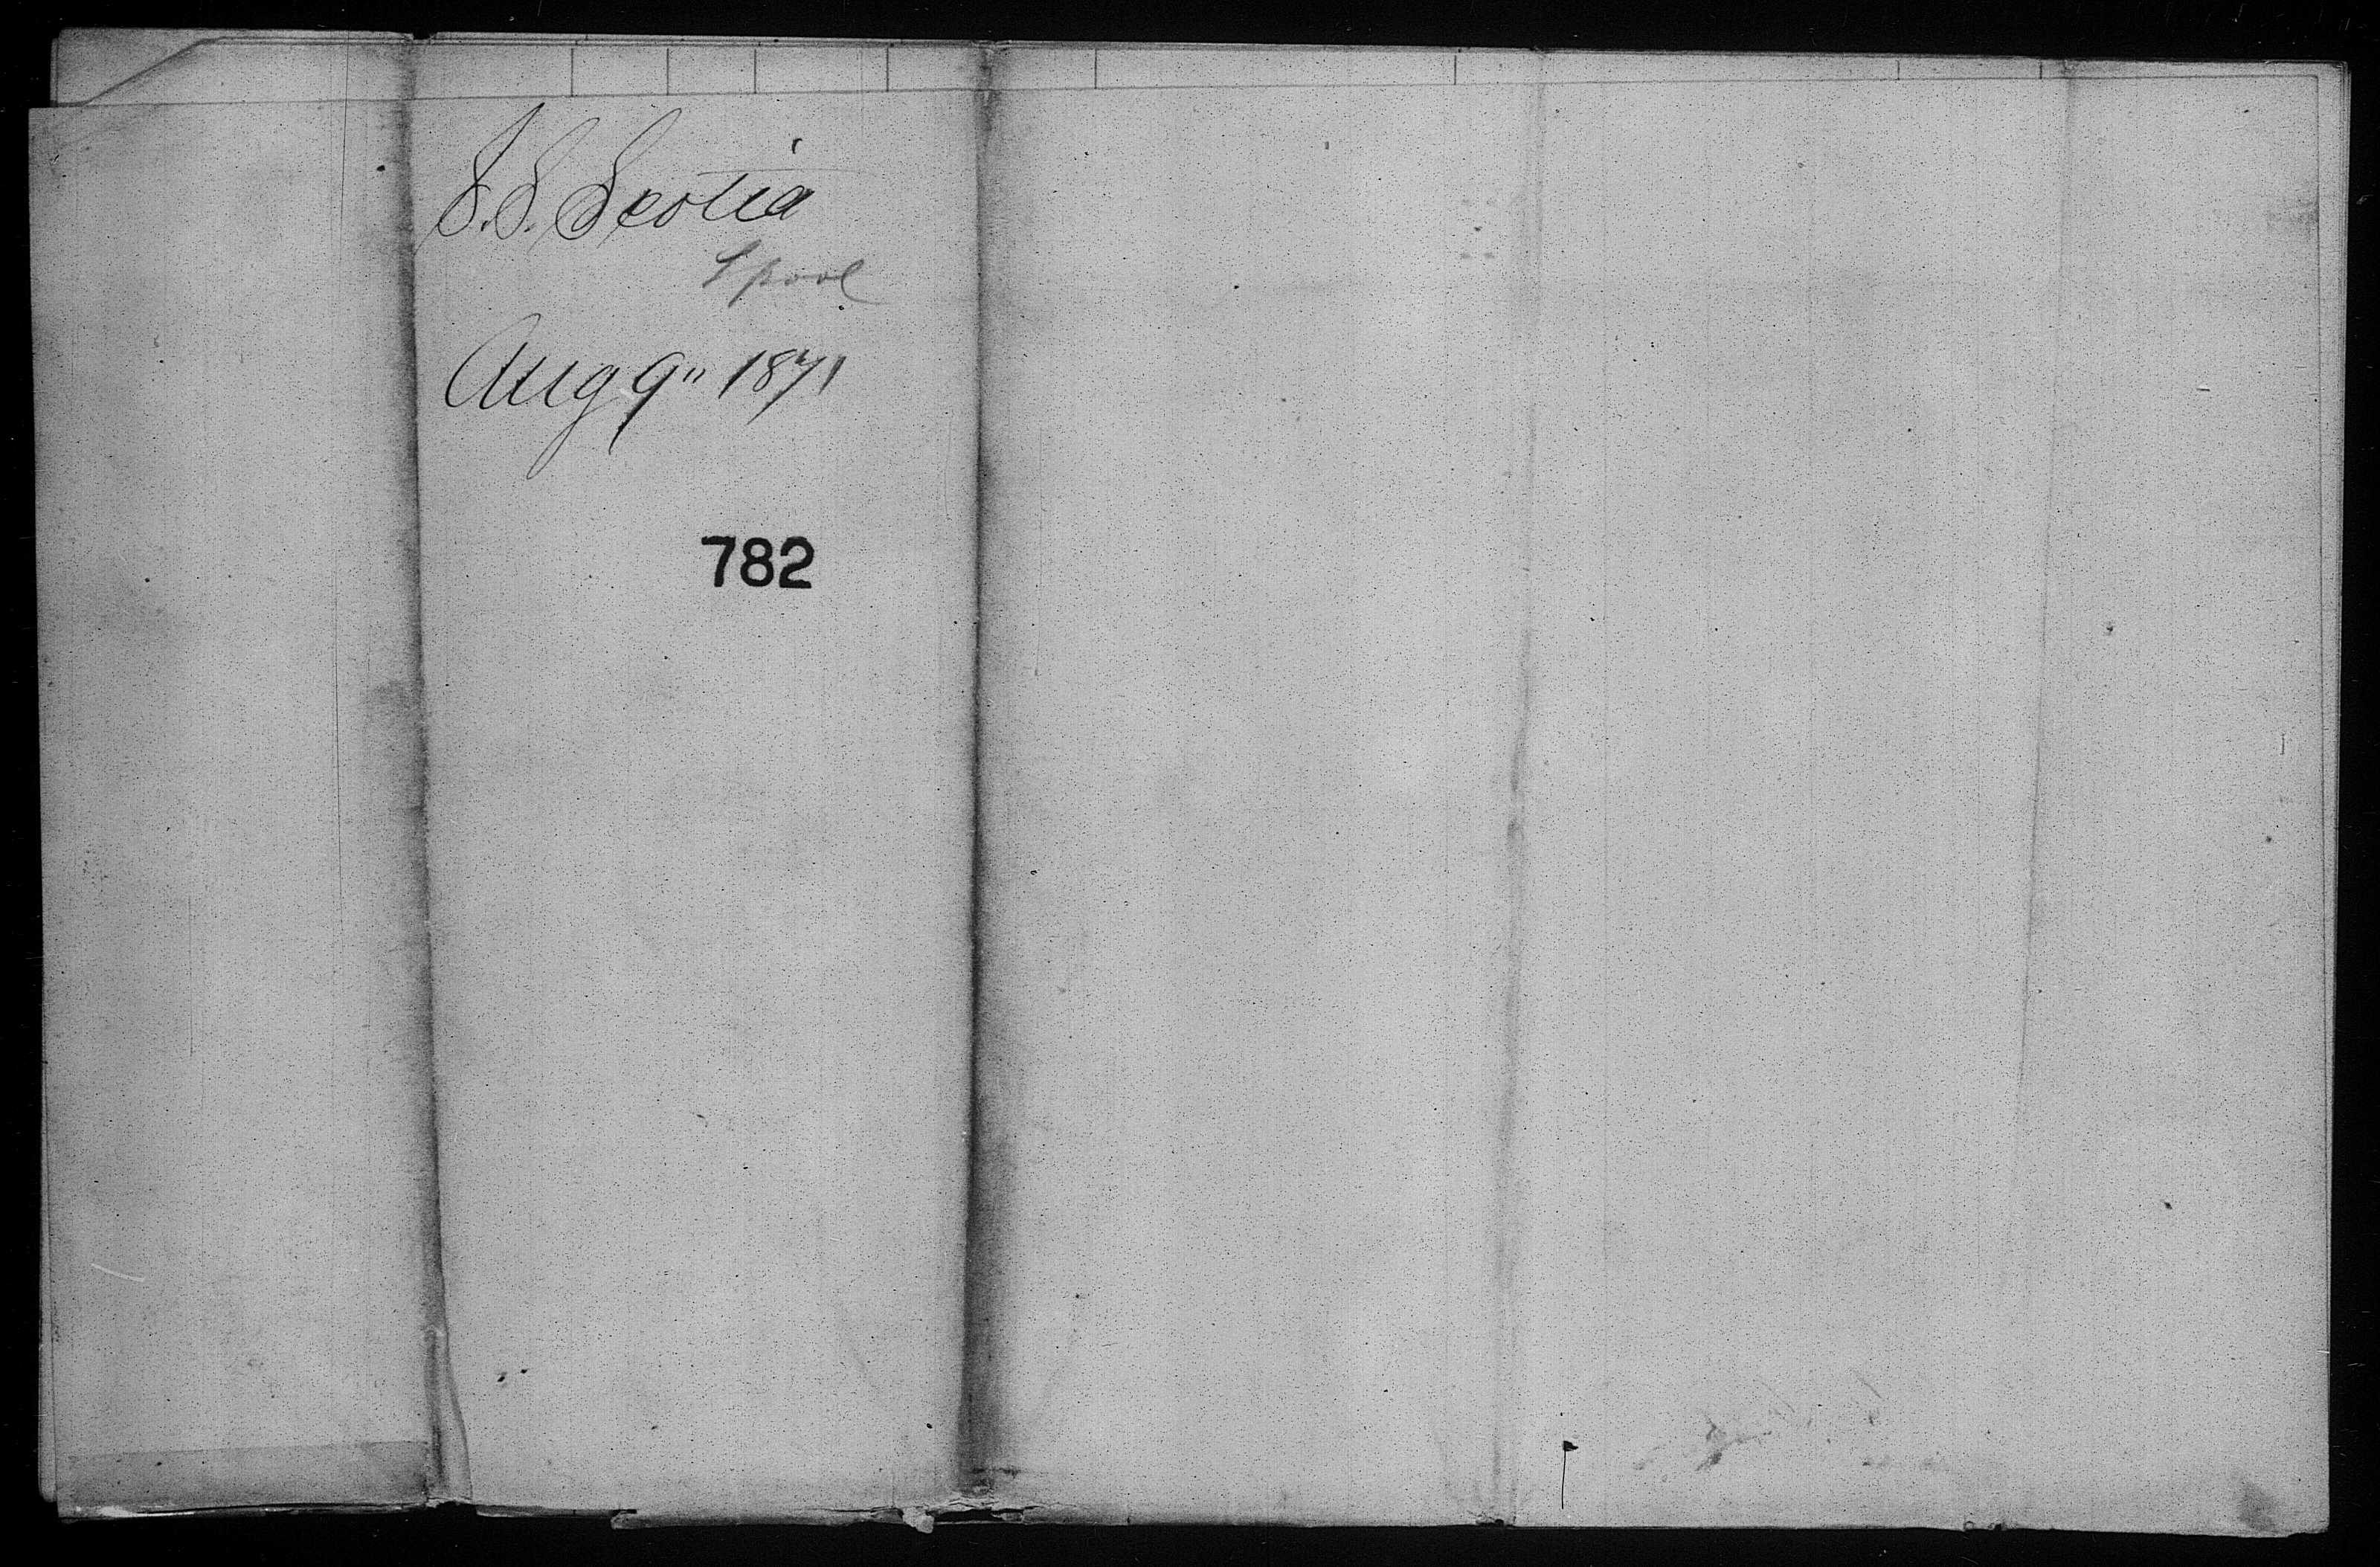 S.S. Scotia
Lpool
Aug 9" 1871
782